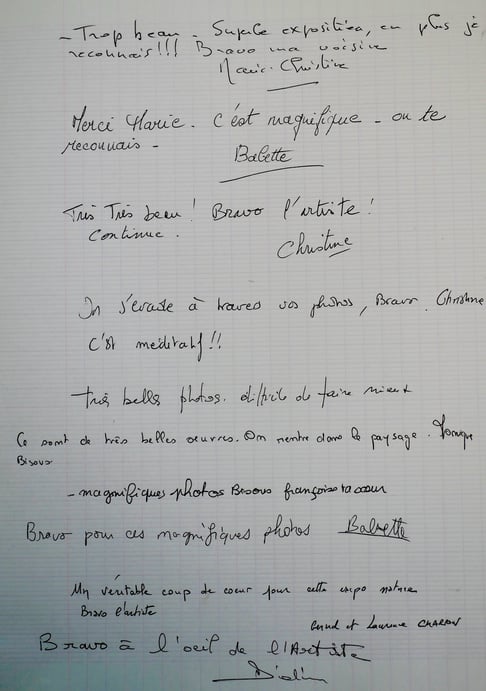 - Trop beau - Superbe exposition, en plus je
reconnais!!! Bravo ma voisine
Marie-Christine
Merci Marie. C'est magnifique - on te
reconnais -
Babette
Très Très beau! Bravo l'artiste!
Continue.
Christine
On s'évade à travers vos photos, Bravo. Christine
C'est méditatif!!
très belles photos. difficile de faire mieux
Ce sont de très belles oeuvres. On rentre dans le paysage.
Bisous
- magnifiques photos Bisous françoise ta soeur
Bravo pour ces magnifiques photos Babette
Un véritable coup de coeur pour cette expo nature
Bravo l'artiste
et Laurence
Bravo à l'oeil de l'Artiste